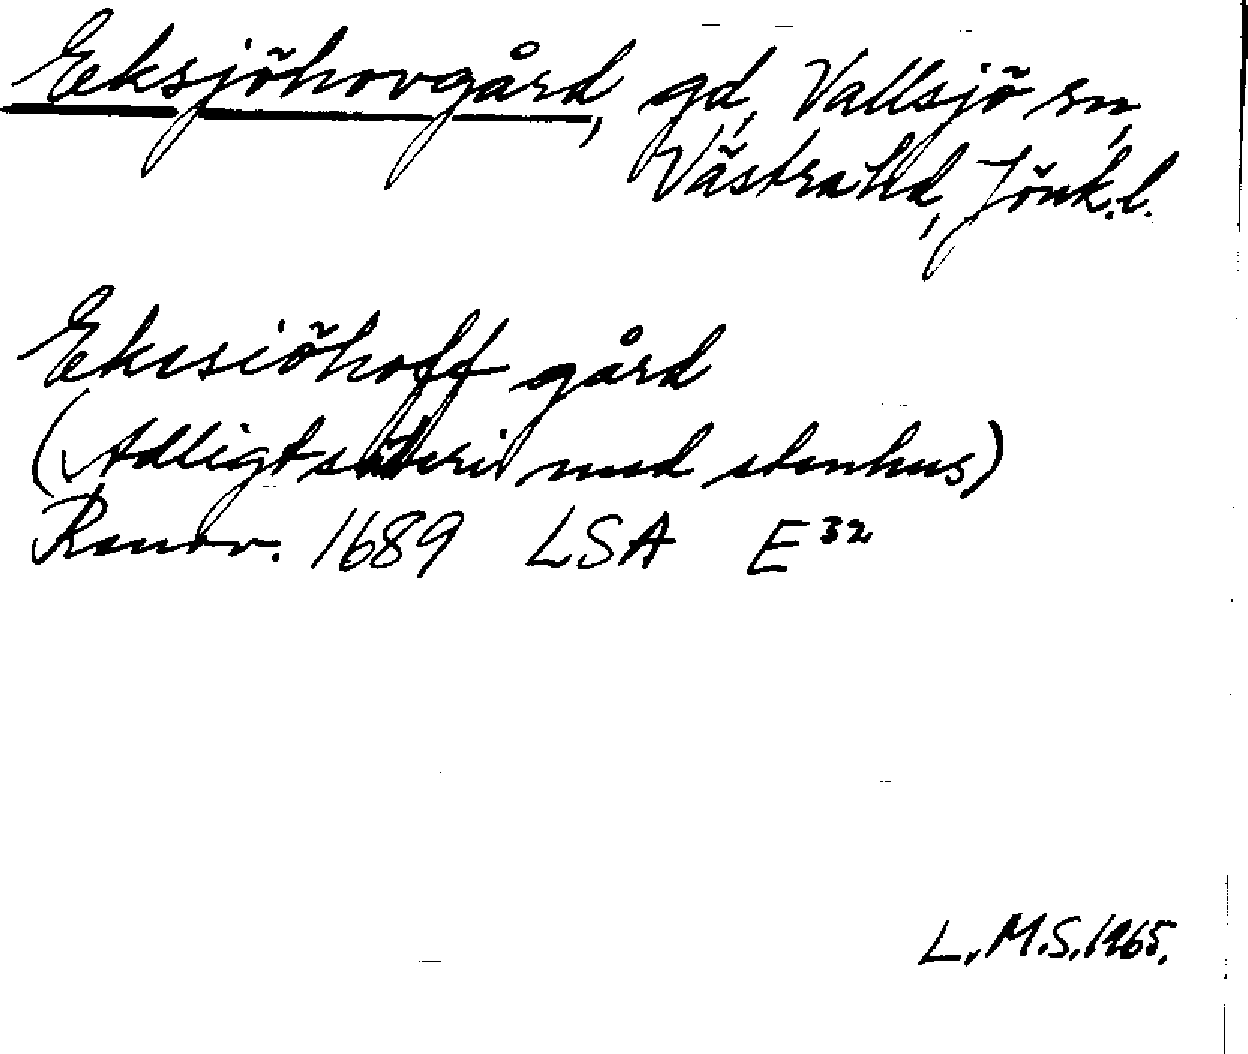 Eksjöhovgård, gd, Vallsjö sn,
Västra hd, Jönk.l.
Ekesiöhoff gård
(Adligt säteri med stenhus)
Renov. 1689 LSA E32
L.M.S. 1965.